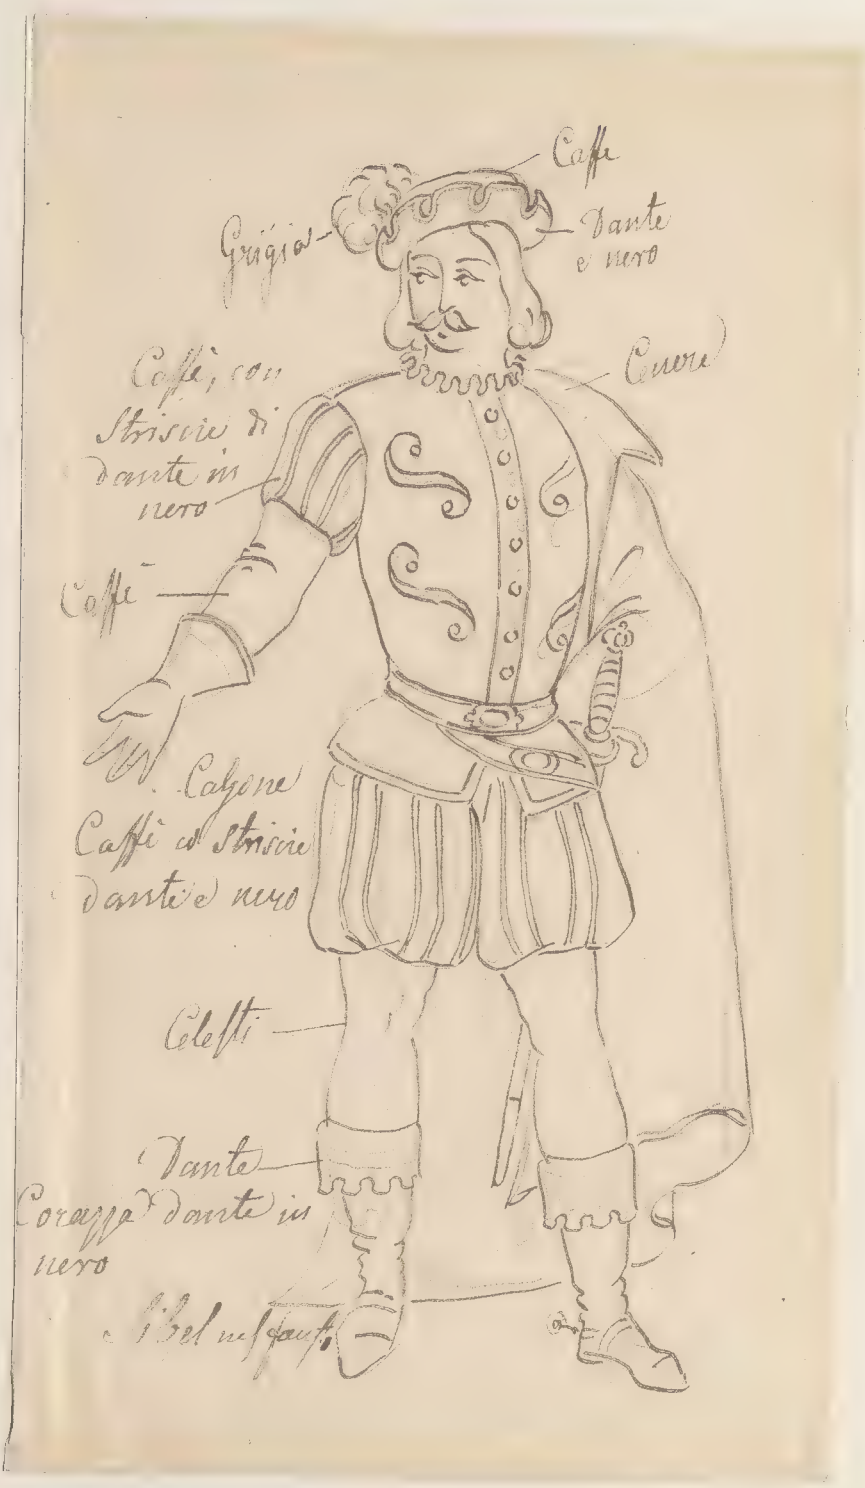 Caffe
Grigio
Dante
e nero
Caffè, con
Striscie di
dante in
nero
Cenere
Caffè
Calzone
Caffè co Striscie
dante e nero
Celesti
Dante
Corazza dante in
nero
Sibel nel faust.